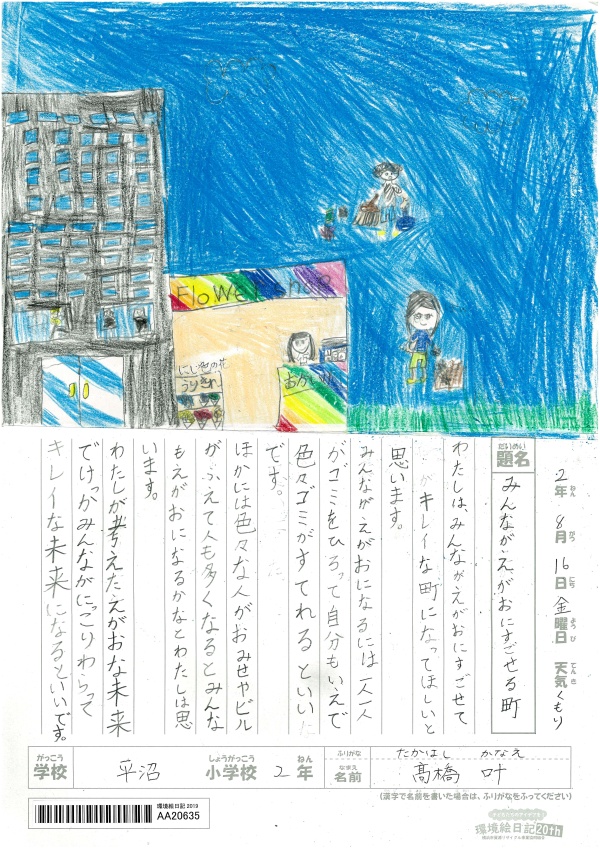 FloWer
にじ色の花
うりきれ
2年 8月 16日 金曜日 天気 くもり
ねん がつ にち ようび てんき
だいめい
題名
みんながえがおにすごせる町
わたしは、みんながえがおにすごせて
がキレイな町になってほしいと
思います。
みんながえがおになるには一人一人
がゴミをひろって自分もいえで
色々ゴミがすてれるといい
です。
ほかには色々な人がおみせやビル
がふえて人も多くなるとみんな
もえがおになるかなとわたしは思
います。
わたしが考えたえがおな未来
でけっかみんながにっこりわらって
キレイな未来になるといいです。
がっこう しょうがっこう ねん
学校 平沼 小学校 2年
ふりがな たかはし かなえ
なまえ
名前 髙橋 叶
(漢字で名前を書いた場合は、ふりがなをふってください)
環境絵日記 2019
AA20635
環境絵日記20th